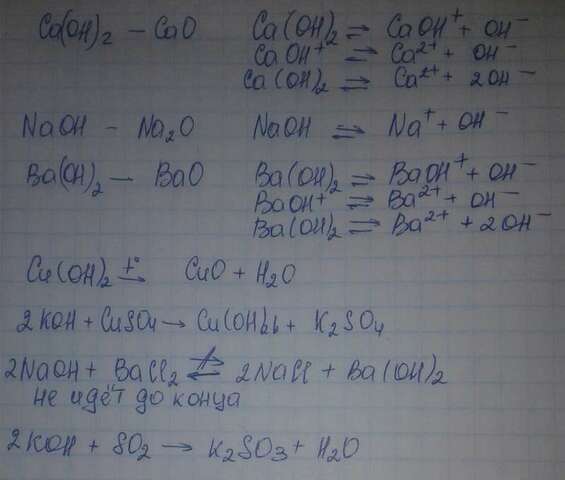 Ca(OH)₂ — CaO Ca(OH)₂ ⇌ CaOH⁺ + OH⁻
CaOH⁺ ⇌ Ca²⁺ + OH⁻
Ca(OH)₂ ⇌ Ca²⁺ + 2OH⁻
NaOH — Na₂O NaOH ⇌ Na⁺ + OH⁻
Ba(OH)₂ — BaO Ba(OH)₂ ⇌ BaOH⁺ + OH⁻
BaOH⁺ ⇌ Ba²⁺ + OH⁻
Ba(OH)₂ ⇌ Ba²⁺ + 2OH⁻
Cu(OH)₂ →t° CuO + H₂O
2KOH + CuSO₄ → Cu(OH)₂↓ + K₂SO₄
2NaOH + BaCl₂ ⇌ 2NaCl + Ba(OH)₂
не идёт до конца
2KOH + SO₂ → K₂SO₃ + H₂O